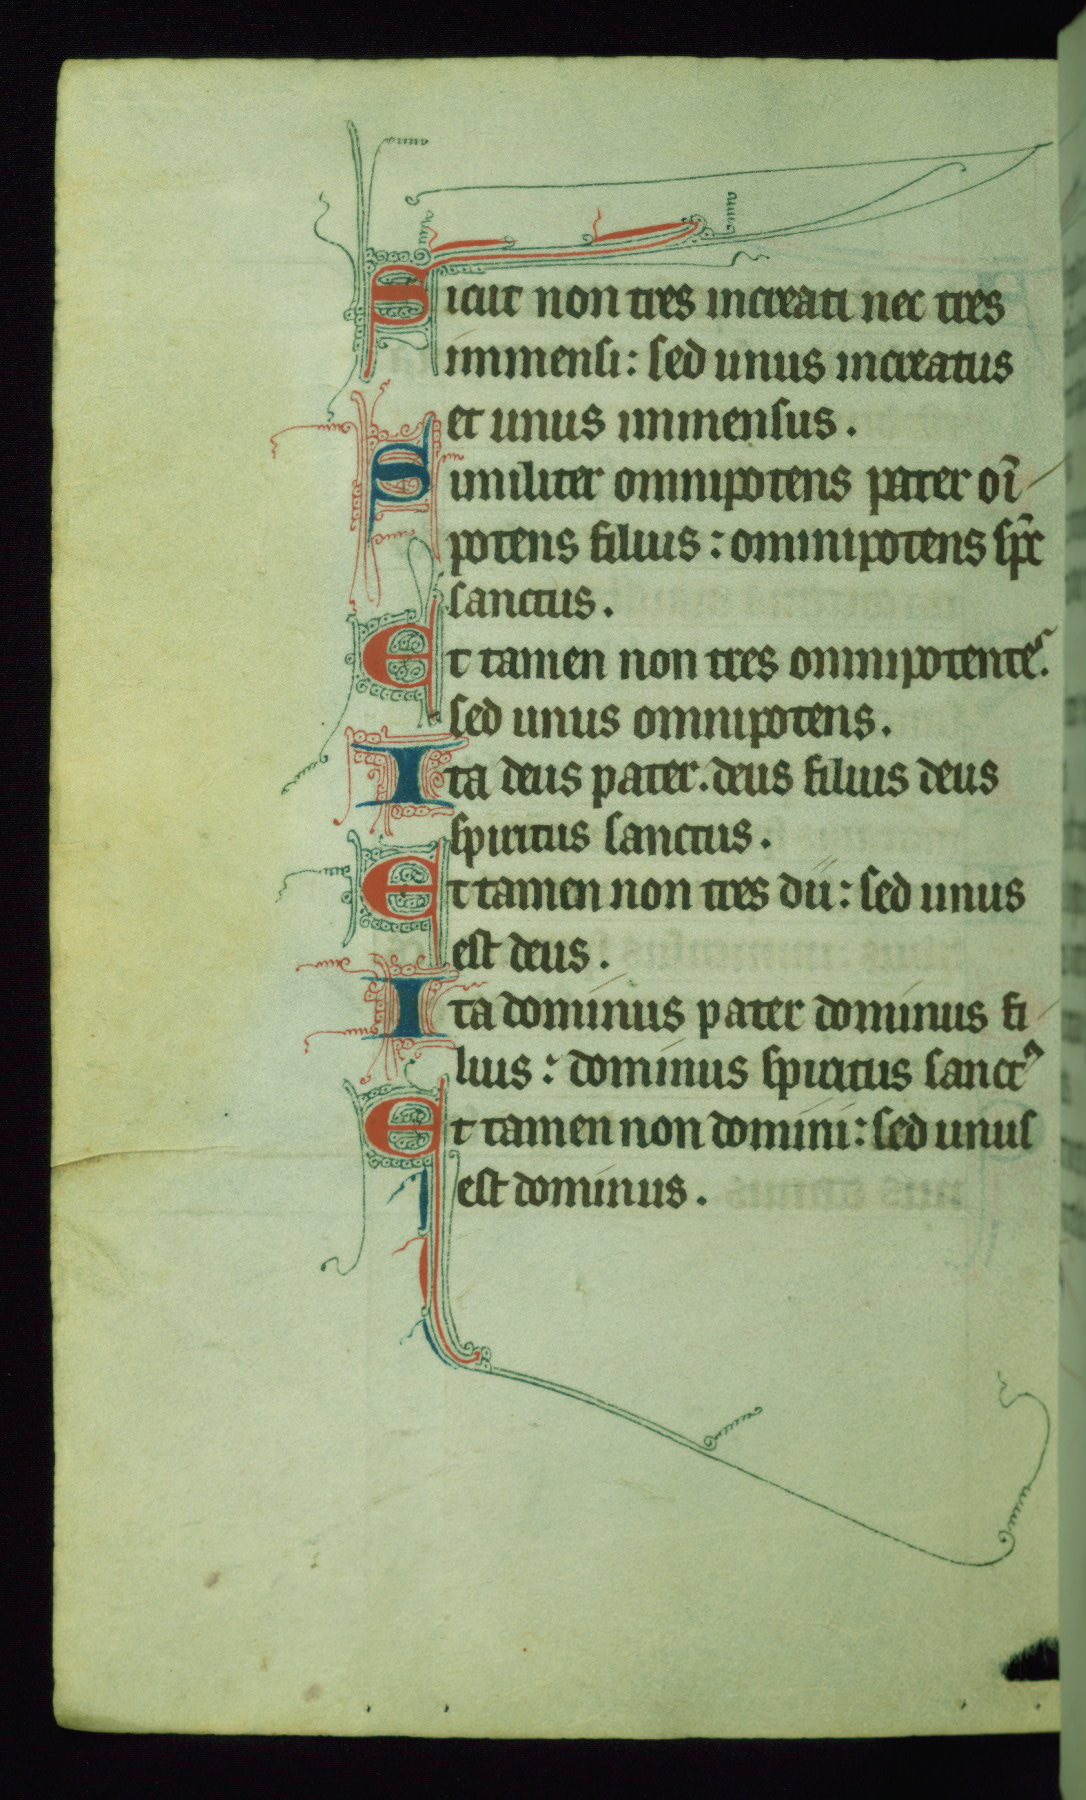 Sicut non tres increati nec tres
immensi: sed unus increatus
et unus immensus.
Similiter omnipotens pater oī
potens filius: omnipotens sp̄c
sanctus.
Et tamen non tres omnipotentes.
sed unus omnipotens.
Ita deus pater. deus filius deus
spiritus sanctus.
Et tamen non tres dii: sed unus
est deus.
Ita dominus pater dominus fi
lius: dominus spiritus sanctꝰ
Et tamen non domini: sed unus
est dominus.